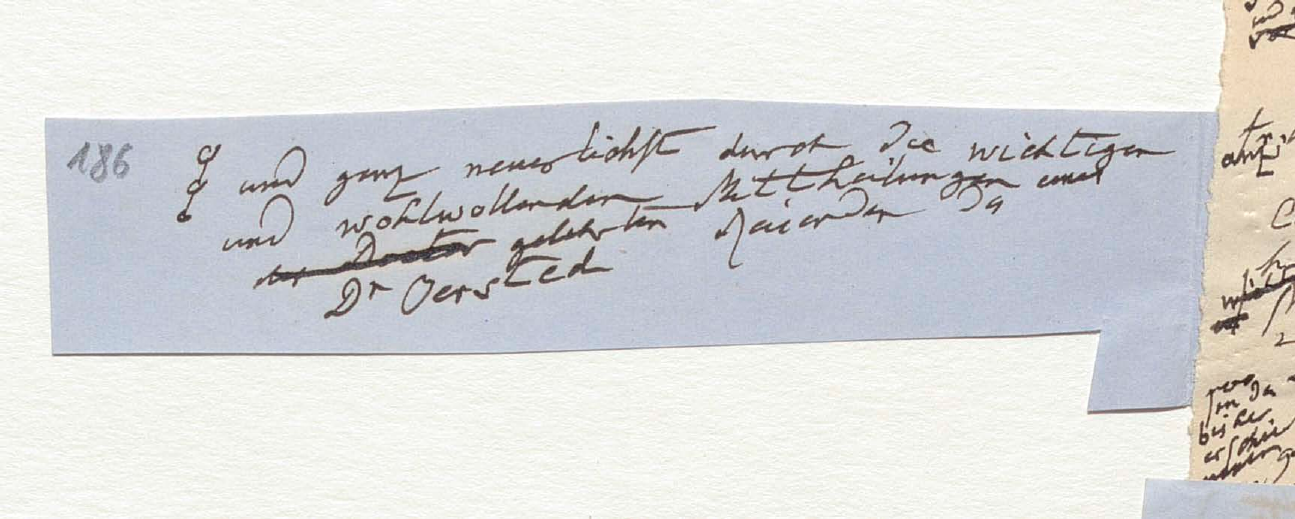 186 und ganz neuerlichst durch die wichtigen
und wohlwollenden Mittheilungen eines
der Doctor gelehrten Reisenden Da
Dr Oersted
bishe